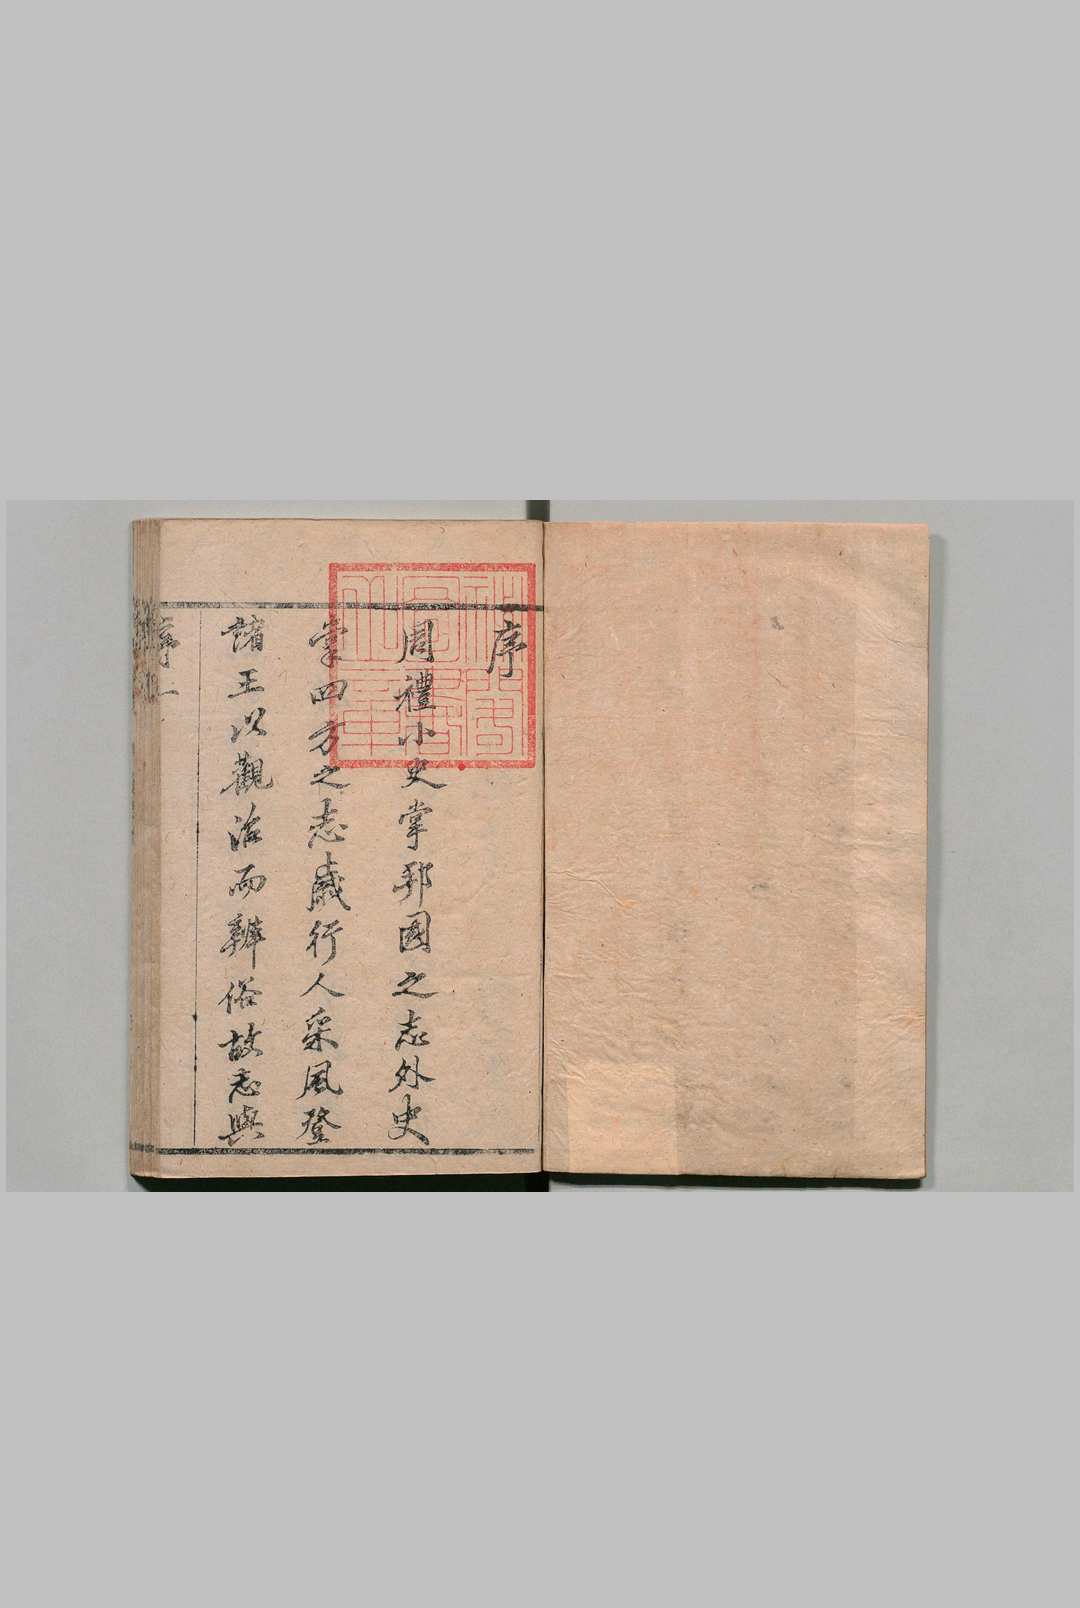 序
周禮小史掌邦國之志外史
掌四方之志歲行人采風登
諸王以觀治而辨俗故志與
序一